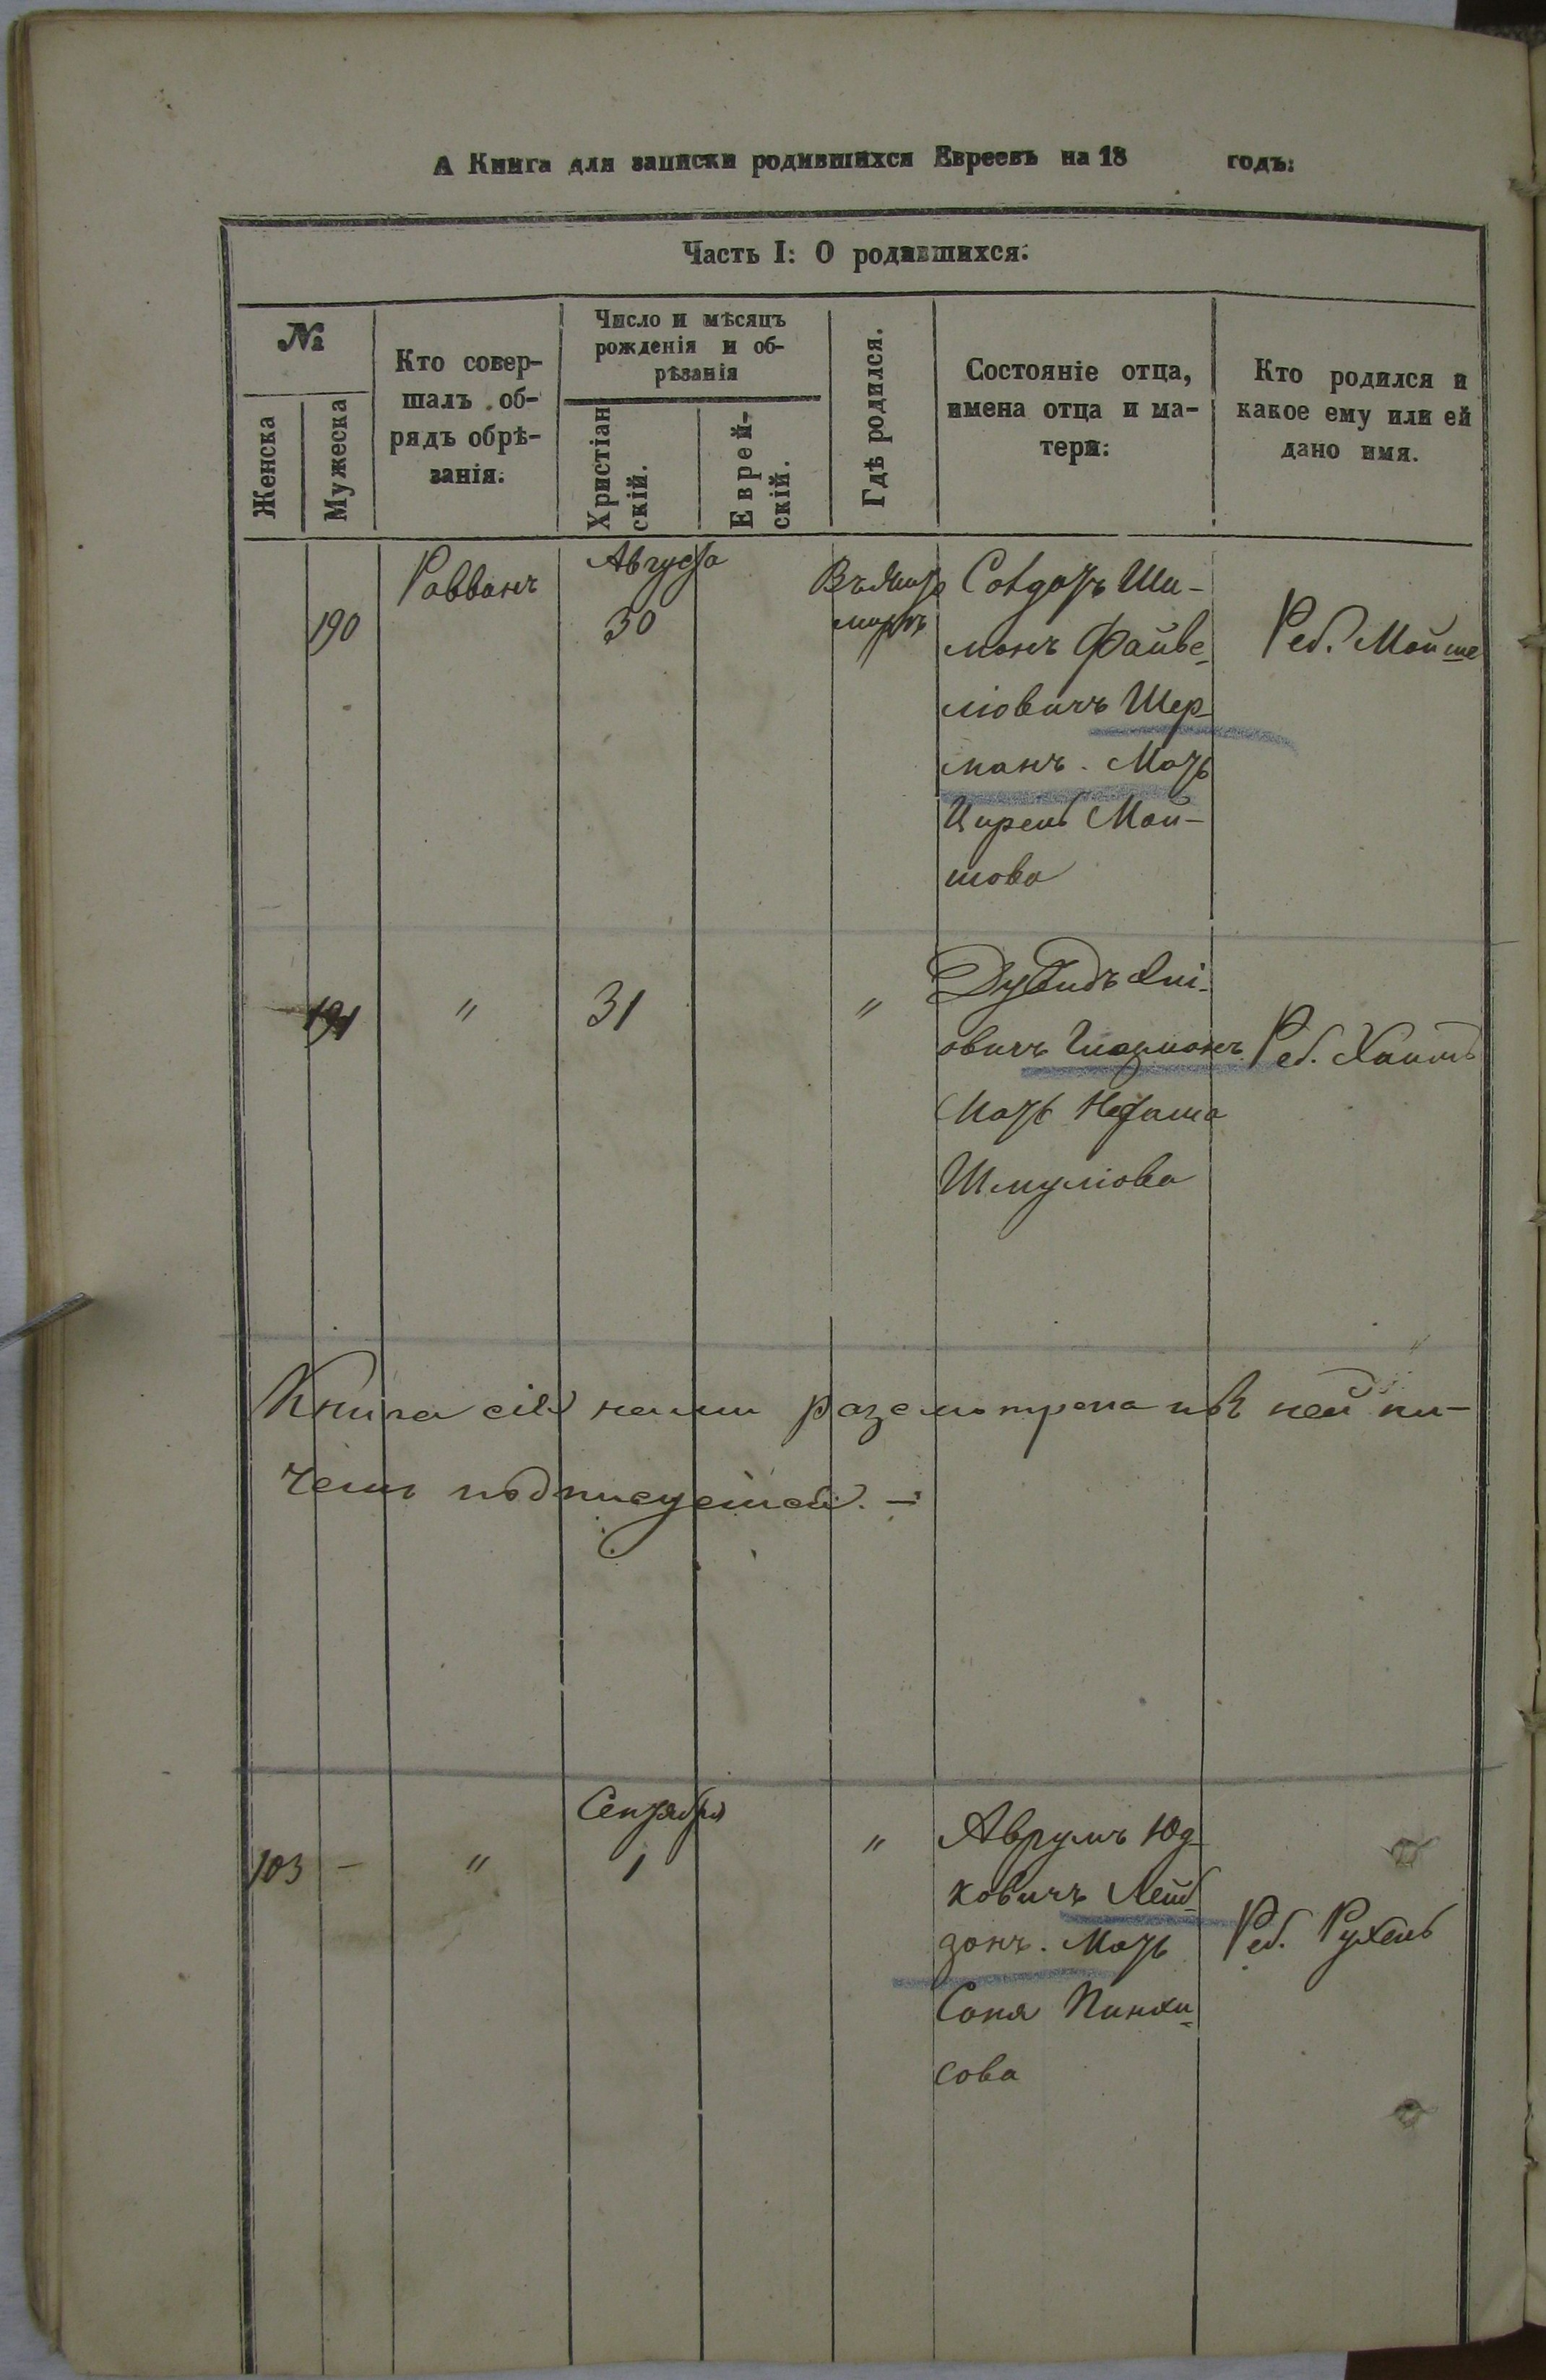 А Книга для записки родившихся Евреевъ на 18 годъ:
Часть I: О родившихся:
№
Женска
Мужеска
Кто совер-
шалъ об-
рядъ обрѣ-
занія:
Число и мѣсяцъ
рожденія и об-
рѣзанія
Христіан
скій.
Еврей-
скій.
Гдѣ родился.
Состояніе отца,
имена отца и ма-
тери:
Кто родился и
какое ему или ей
дано имя.
190
Раввинъ
Августа
30
Въ Жито
мирѣ
Солдатъ Ши-
монъ Файве-
ліовичъ Шер-
манъ. Мать
Цирель Мои-
шова
Реб. Мойше
191
"
31
"
Дувидъ
овичъ
Мать
Шмуліова
Реб. Хаимъ
Книга сія нами разсмотрена и въ ней ни-
чего
103
-
"
Сентября
1
"
Аврумъ Юд-
ковичъ Лейб-
зонъ. Мать
Соня Пинхи-
сова
Реб. Рухель